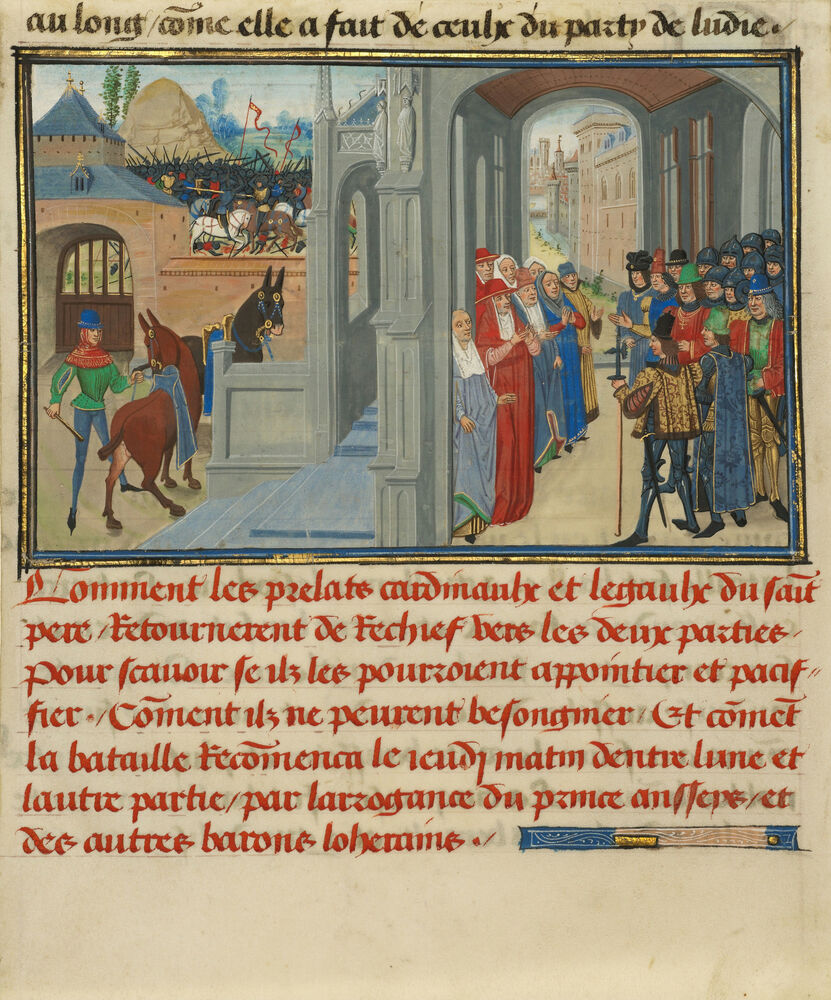 au long / cõme elle a fait de ceulx du party de ludie .
Comment les prelats cardinaulx et legaulx du saĩt
pere / Retournerent de Rechief vers les deux parties .
Pour scauoir se ilz les pourroient appointier et pacif-
fier . / Cõment ilz ne peurent besongnier / Et cõmẽt
la bataille Recõmenca le ieudj matin dentre lune et
lautre partie / par larrogance du prince ansseys / et
des autres barons loherains . /